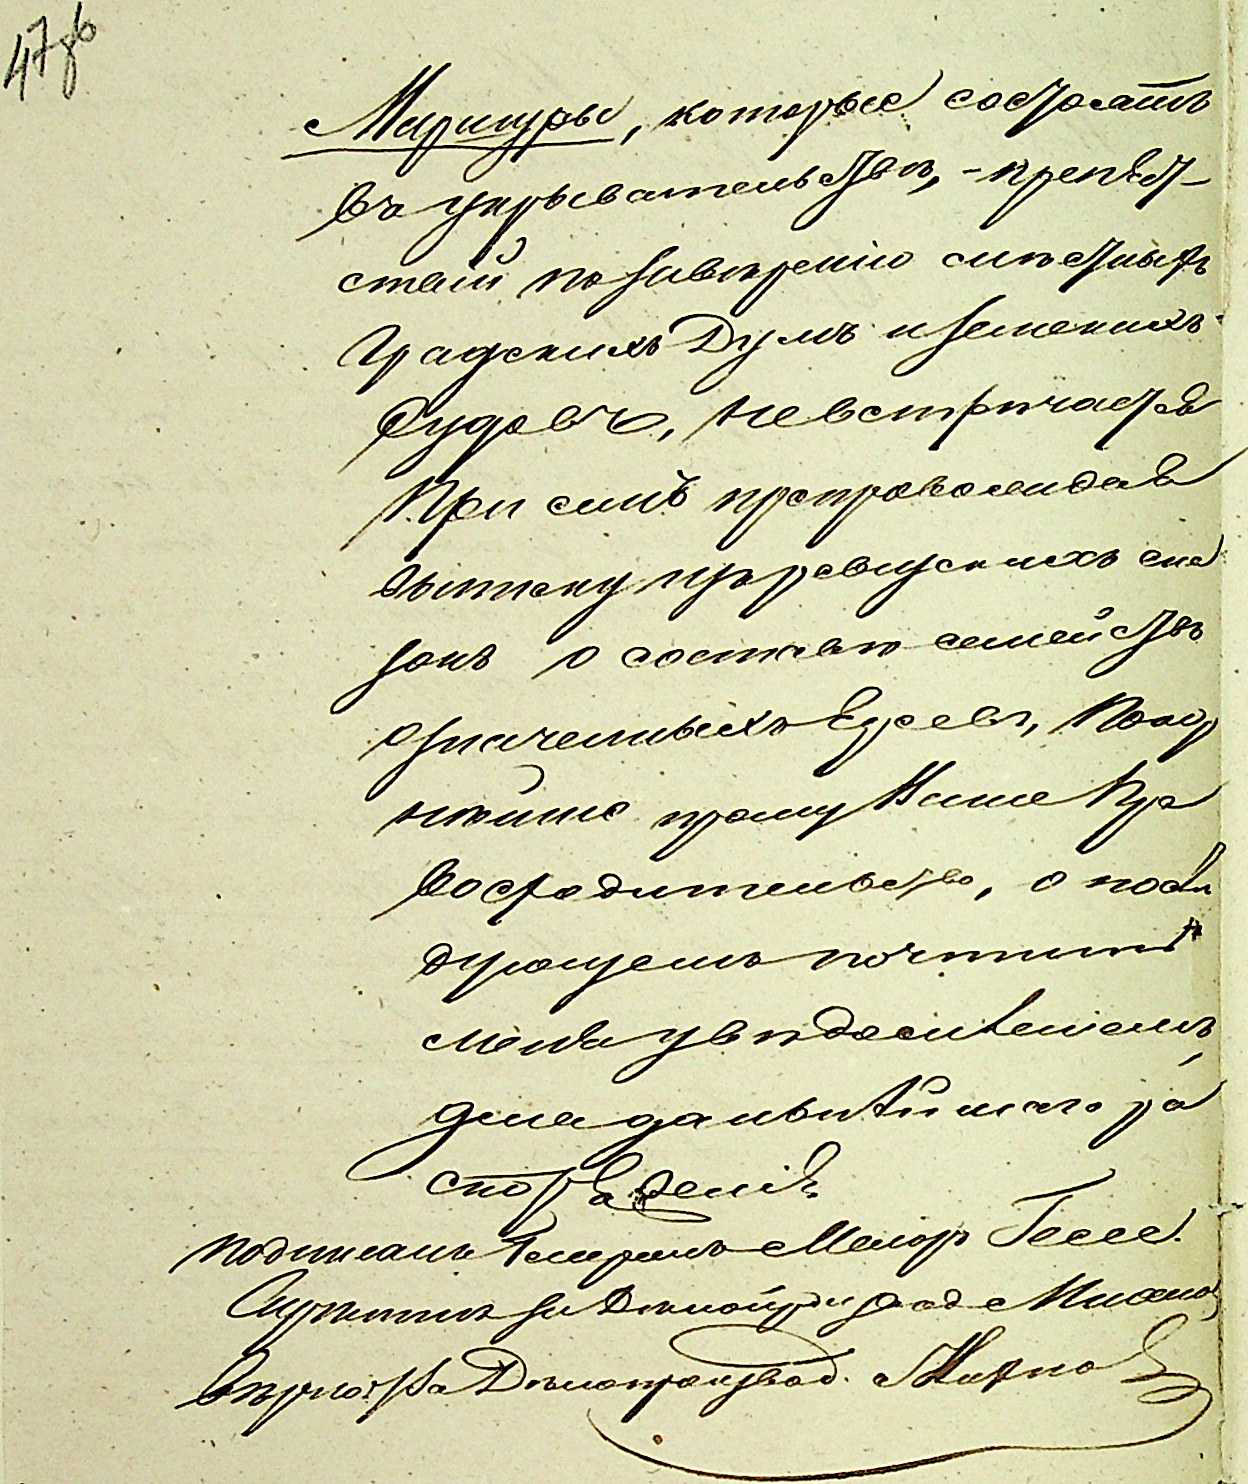 47 об
Миркуры, которые состоятъ
въ укрывательствѣ, - препят-
ствий по завѣренію мѣстныхъ
Градскихъ Думъ и земскихъ
Судовъ, не встрѣчается
При семъ препровождая
выписку изъ ревизскихъ ска
зокъ о составѣ семействъ
означенныхъ Евреевъ, Покор
нѣйше прошу Ваше Пре
восходительство, о послѣ
дующемъ почтить
меня увѣдомленіемъ,
для дальнѣйшаго ра
споряженія.
подписалъ Генералъ Маіоръ Гессе.
Скрѣпилъ за
вѣрно: За Дѣлопроизвод.